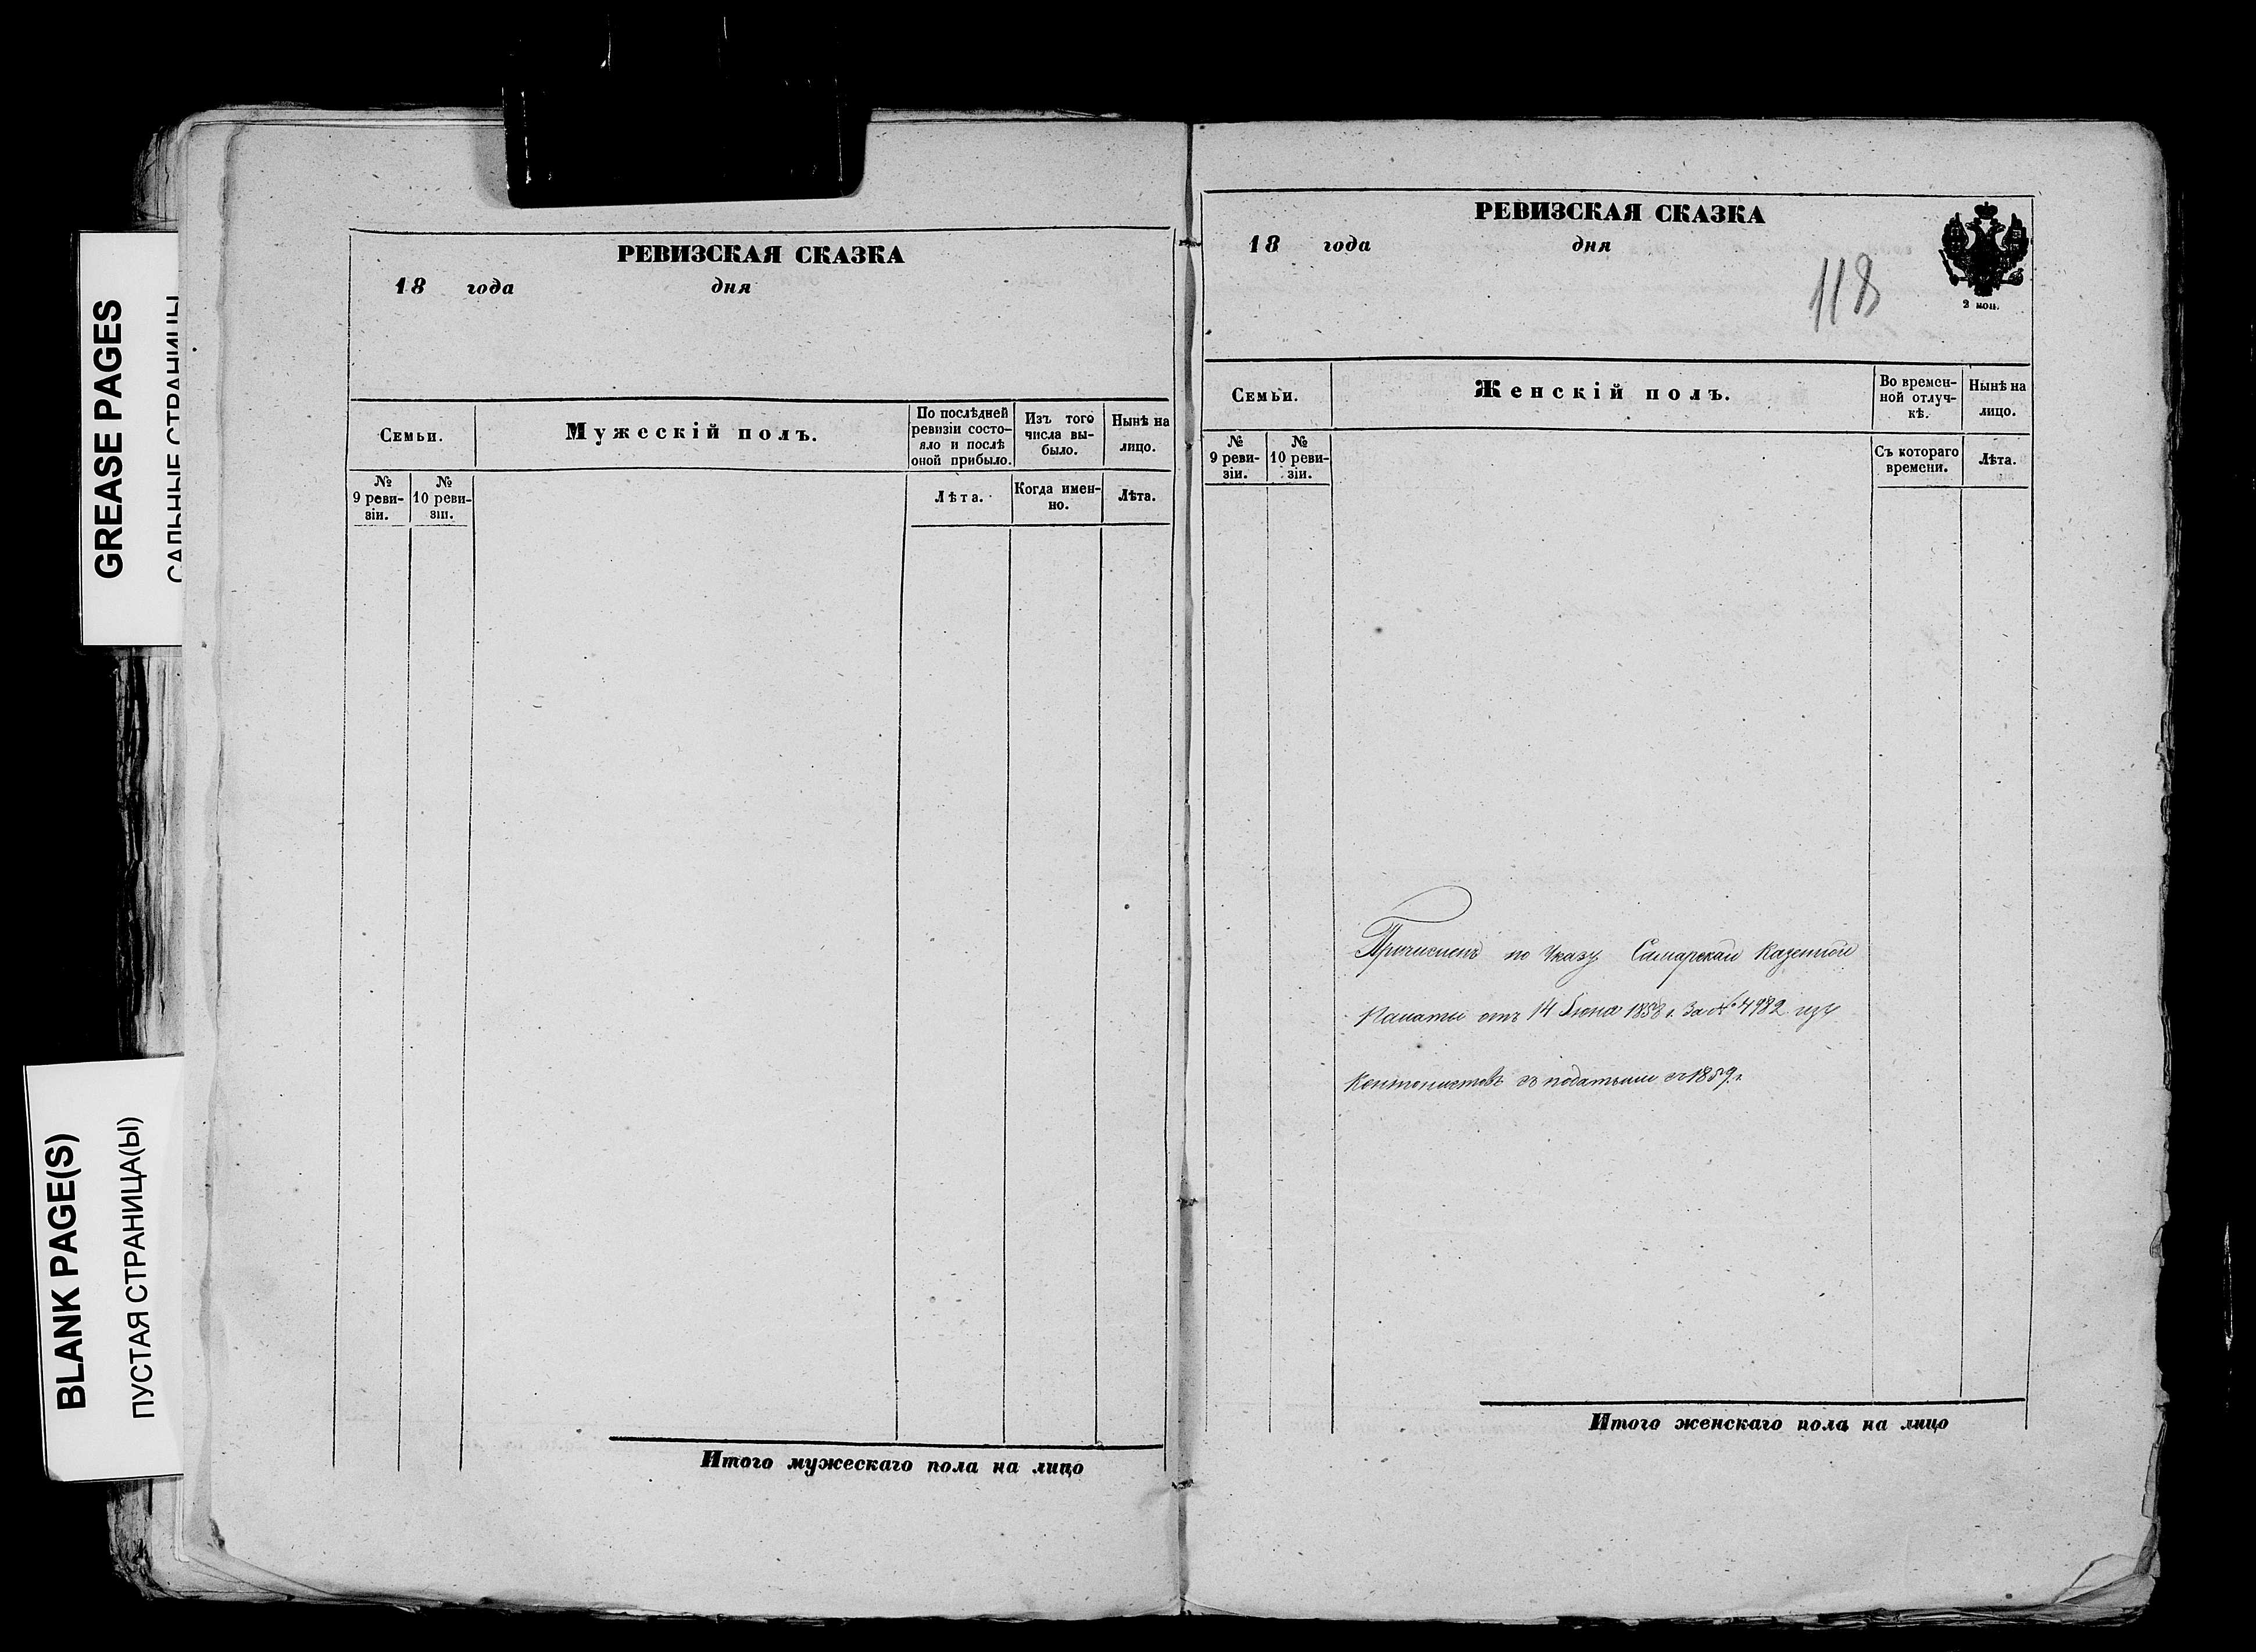 GREASE PAGES
САЛЬНЫЕ СТРАНИЦЫ
BLANK PAGE(S)
ПУСТАЯ СТРАНИЦА(Ы)
РЕВИЗСКАЯ СКАЗКА
18 года дня
Семьи.
Мужескій полъ.
По послѣдней ревизіи состо-
яло и послѣ
оной прибыло.
Изъ того
числа вы-
было.
Нынѣ на
лицо.
№
9 реви-
зіи.
№
10 реви-
зіи.
Лѣта.
Когда имен-
но.
Лѣта.
Итого мужескаго пола на лицо
РЕВИЗСКАЯ СКАЗКА
18 года дня
118
2 коп.
Семьи.
Женскій полъ.
Во времен-
ной отлуч-
кѣ.
Нынѣ на
лицо.
№
9 реви-
зіи.
№
10 реви-
зіи.
Съ котораго
времени.
Лѣта.
Причисленъ по Указу Самарской Казенной
Палаты отъ 14 Іюня 1858 г. За № 4982 изъ
Кантонистовъ съ податьми съ 1859 г.
Итого женскаго пола на лицо